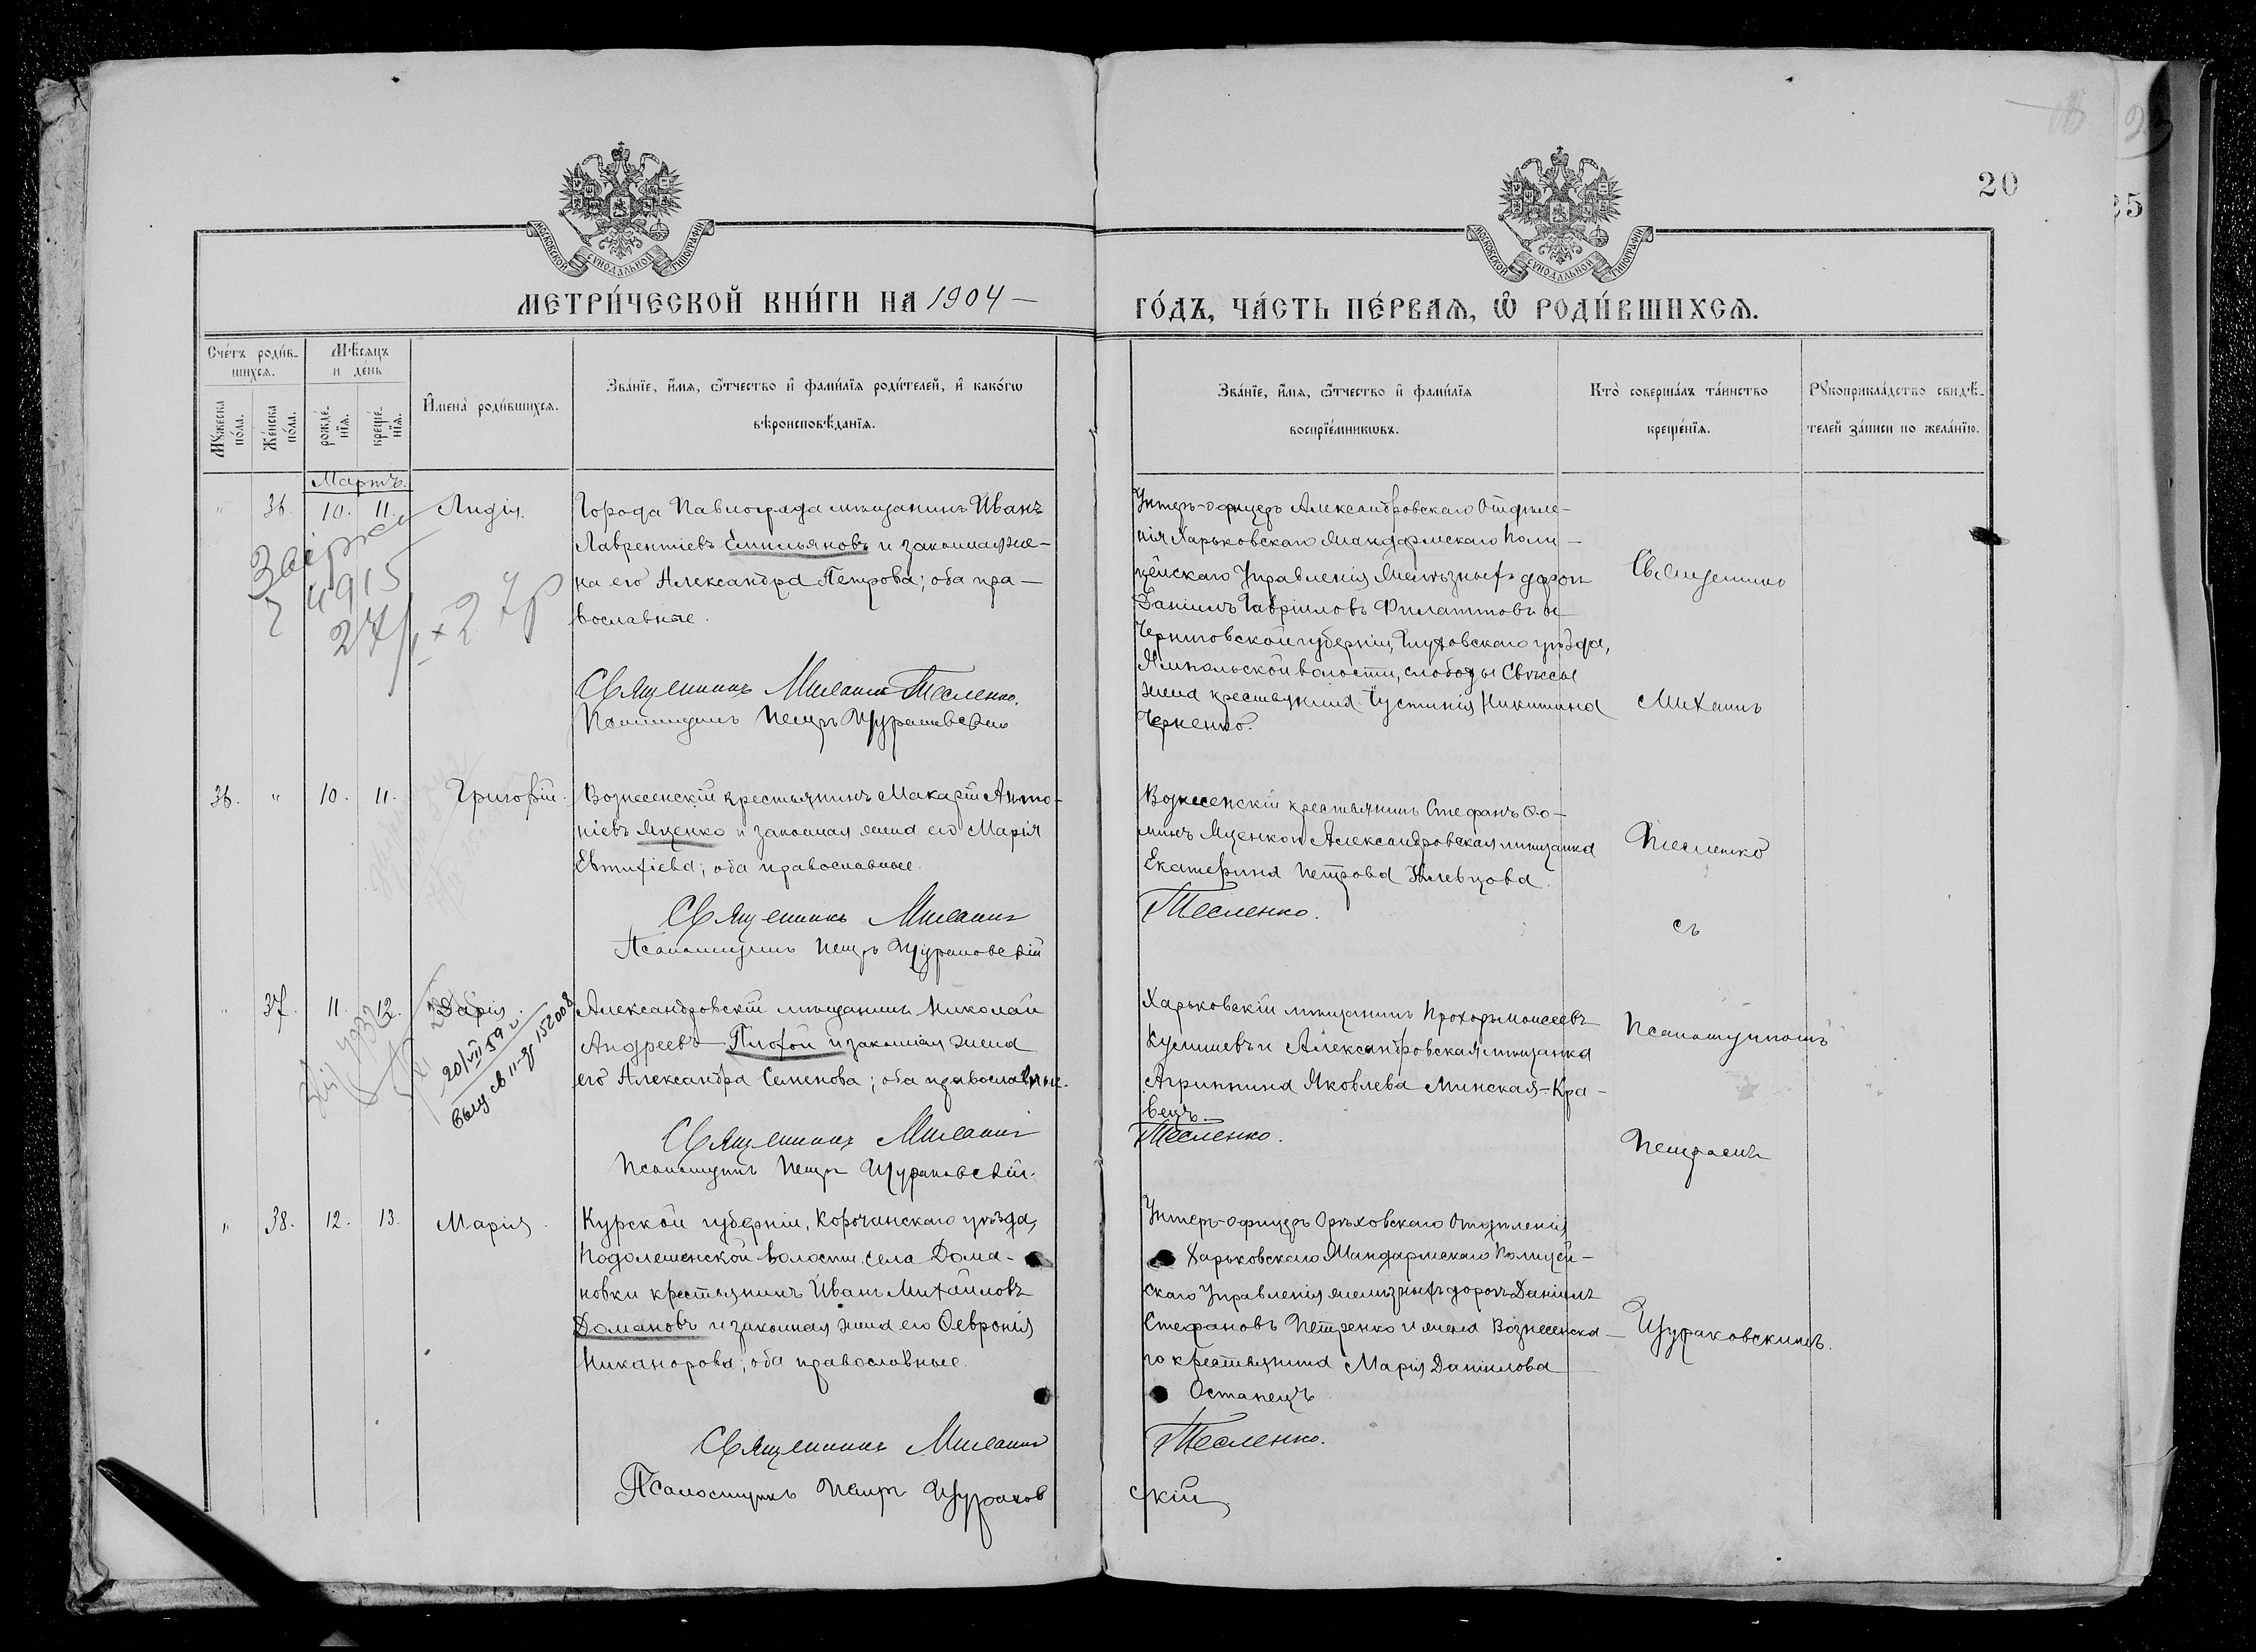 20
25
МОСКОВСКОЙ СѴНОДАЛЬНОЙ ТИПОГРАФІИ
МОСКОВСКОЙ СѴНОДАЛЬНОЙ ТИПОГРАФІИ
МЕТРИ́ЧЕСКОЙ КНИ́ГИ НА 1904 —
ГО́ДЪ, ЧА́СТЬ ПЕ́РВАѦ, Ѽ РОДИ́ВШИХСѦ.
Сче́тъ роди́в-
шихсѧ.
Мѣ́сѧцъ
и де́нь
Мꙋ́жеска по́ла.
Же́нска по́ла.
рожде́-нїѧ.
креще́-нїѧ.
И҆мена̀ роди́вшихсѧ.
Зва́нїе, и҆́мѧ, ѻ҆́тчество и҆ фами́лїѧ роди́телей, и҆ како́гѡ
вѣроисповѣ́данїѧ.
Зва́нїе, и҆́мѧ, ѻ҆́тчество и҆ фами́лїѧ
воспрїе́мникѡвъ.
Кто̀ соверша́лъ та́инство
креще́нїѧ.
Рꙋкоприкла́дство свидѣ́-
телей за́писи по жела́нїю.
Мартъ.
" 36. 10. 11. Лидія.
Города Павлограда мѣщанинъ Иванъ
Лаврентіевъ Емильяновъ и законная же-
на его Александра Петрова; оба пра-
вославные.
Священникъ Михаилъ Тесленко.
Псаломщикъ Петръ Щураковскій
4915
27
Унтеръ-офицеръ Александровскаго Отдѣле-
нія Харьковскаго Жандармскаго Поли-
цейскаго Управленія Желѣзныхъ дорогъ
Даніилъ Гавріиловъ Филаттовъ и
Черниговской губерніи, Глуховскаго уѣзда,
Ямпольской волости, слободы Свѣссы
жена крестьянина Іустинія Никитина
Черненко.
Священникъ
Михаилъ
36. " 10. 11. Григорій.
Вознесенскій крестьянинъ Макарій Анто-
ніевъ Яценко и законная жена его Марія
Евтихіева; оба православные.
Священникъ Михаилъ
Псаломщикъ Петръ Щураковскій
Вознесенскій крестьянинъ Стефанъ Ѳо-
минъ Яценко и Александровская мѣщанка
Екатерина Петрова
Тесленко.
Тесленко
съ
" 37. 11. 12. Дарія.
20/VII 59 г
Александровскій мѣщанинъ Николай
Андреевъ Плохой и законная жена
его Александра Семенова; оба православные.
Священникъ Михаилъ
Псаломщикъ Петръ Щураковскій.
Харьковскій мѣщанинъ Прохоръ Моисеевъ
и Александровская мѣщанка
Агриппина Яковлева Минская-Кра-
вецъ.
Тесленко.
Псаломщикомъ
Петромъ
" 38. 12. 13. Марія.
Курской губерніи, Корочанскаго уѣзда,
Подолешенской волости, села Дома-
новки крестьянинъ Иванъ Михайловъ
Домановъ и законная жена его Ѳевронія
Никанорова; оба православные.
Священникъ Михаилъ
Псаломщикъ Петръ Щураков
Унтеръ-офицеръ Орѣховскаго Отдѣленія
Харьковскаго Жандармскаго Полицей-
скаго Управленія желѣзныхъ дорогъ Даніилъ
Стефановъ Петренко и жена Вознесенска-
го крестьянина Марія Даніилова
Останецъ
Тесленко.
скій
Щураковскимъ.